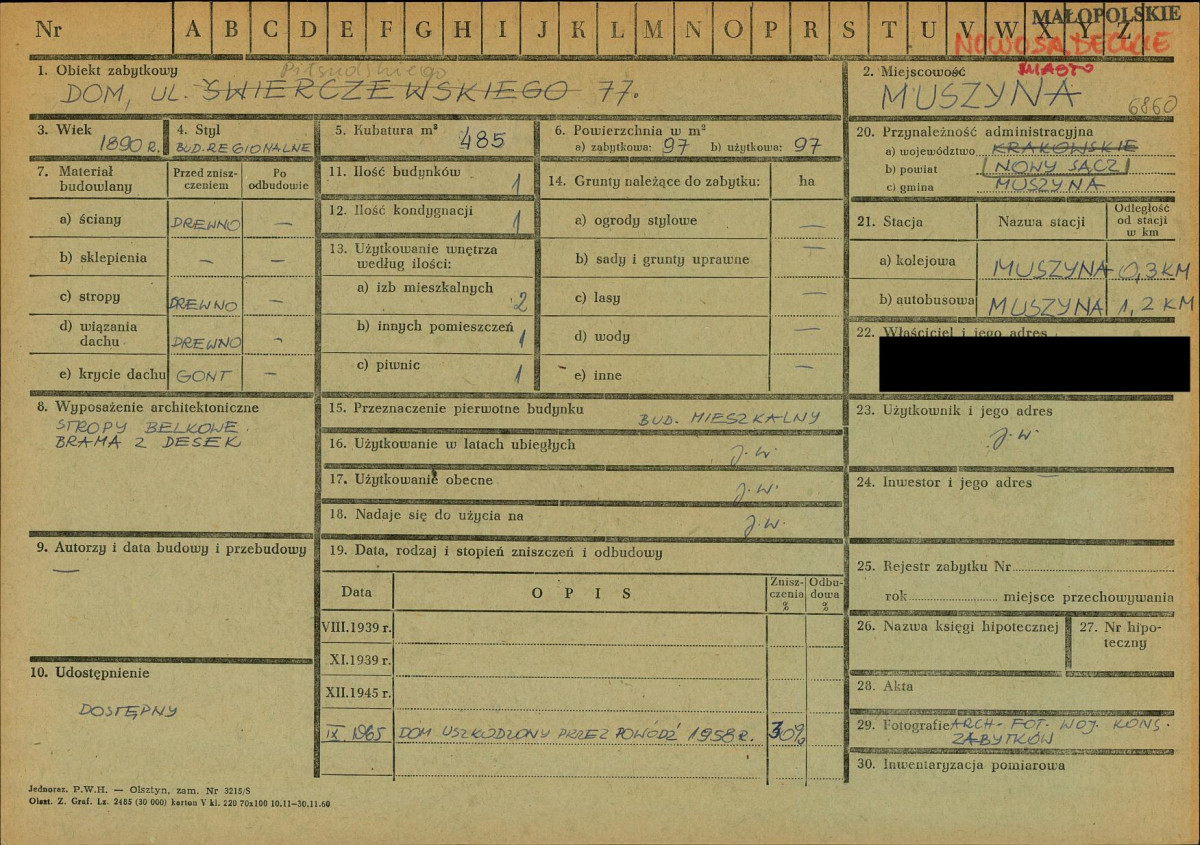 MAŁOPOLSKIE
Nr A B C D E F G H I J K L M N O P R S T U V W X Y Z
NOWOSĄDECKIE
MIASTO
1. Obiekt zabytkowy
Piłsudskiego
DOM, UL. ŚWIERCZEWSKIEGO 77.
2. Miejscowość
MUSZYNA
6860
3. Wiek
1890 R.
4. Styl
BUD. REGIONALNE
5. Kubatura m³
485
6. Powierzchnia w m²
a) zabytkowa: 97 b) użytkowa: 97
7. Materiał budowlany
Przed znisz-
czeniem
Po
odbudowie
a) ściany DREWNO —
b) sklepienia — —
c) stropy DREWNO —
d) wiązania
dachu DREWNO -
e) krycie dachu GONT —
8. Wyposażenie architektoniczne
STROPY BELKOWE.
BRAMA Z DESEK
9. Autorzy i data budowy i przebudowy
—
10. Udostępnienie
DOSTĘPNY
11. Ilość budynków 1
12. Ilość kondygnacji 1
13. Użytkowanie wnętrza
według ilości:
a) izb mieszkalnych 2
b) innych pomieszczeń 1
c) piwnic 1
14. Grunty należące do zabytku: ha
a) ogrody stylowe —
b) sady i grunty uprawne —
c) lasy —
d) wody —
e) inne —
15. Przeznaczenie pierwotne budynku BUD. MIESZKALNY
16. Użytkowanie w latach ubiegłych J.W.
17. Użytkowanie obecne J.W.
18. Nadaje się do użycia na J.W.
19. Data, rodzaj i stopień zniszczeń i odbudowy
Data OPIS Znisz-
czenia
%
Odbu-
dowa
%
VIII.1939 r.
XI.1939 r.
XII.1945 r.
IX 1965 DOM USZKODZONY PRZEZ POWÓDŹ 1958 R. 30%
20. Przynależność administracyjna
a) województwo KRAKOWSKIE
b) powiat NOWY SĄCZ
c) gmina MUSZYNA
21. Stacja Nazwa stacji Odległość
od stacji
w km
a) kolejowa MUSZYNA 0,3 KM
b) autobusowa MUSZYNA 1,2 KM
22. Właściciel i jego adres
23. Użytkownik i jego adres
J.W.
24. Inwestor i jego adres —
25. Rejestr zabytku Nr
rok miejsce przechowywania
26. Nazwa księgi hipotecznej
27. Nr hipo-
teczny
28. Akta
29. Fotografie ARCH. FOT. WOJ. KONS.
ZABYTKÓW
30. Inwentaryzacja pomiarowa
Jednoraz. P.W.H. — Olsztyn, zam. Nr 3215/S
Olszt. Z. Graf. Lz. 2485 (30 000) karton V kl. 220 70x100 10.11—30.11.60